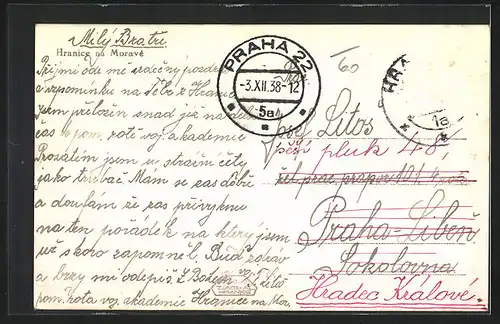 Milý Bratře
Hranice na Moravě
Přijmi ode mě srdečný pozdrav
a vzpomínku na Tebe z Hranic
jsem přeložen synd již na delší
čas k pom. rotě voj. akademie
Prozatím jsem u strážní čety
jako trubač Mám se zas dobře
a doufám že zas přivyknu
na ten pořádek na který jsem
už skoro zapomněl. Buď zdráv
a brzy mi odepiš Z Bohem voj. F. Litoš
pom. rota voj. akademie Hranice na Mor.
PRAHA 22
-3.XII.38-12
5a
60
HRA
1a
Josef Litoš
pěší pluk 48/
žel. prac. prapor 101, 4. rota
Praha-Libeň
Sokolovna
Hradec Králové.